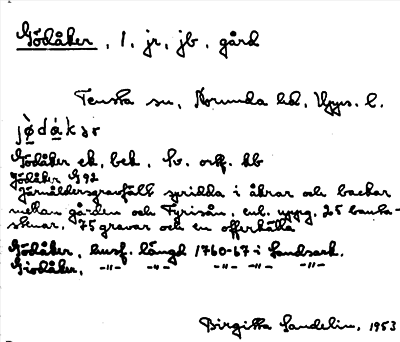 Gödåker, 1, jr, jb, gård
Tensta sn, Norunda hd, Upps. l.
jødåkər
Gödåker ek, bek, lv. ortf. kb
Gödåker G 92
Järnåldersgravfält spridda i åkrar och backar
mellan gården och Fyrisån, enl. uppg. 25 bauta-
stenar, 75 gravar och en offerkälla
Gödåker, husf. längd 1760-67 i Landsark.
Giödåker, -"- -"- -"- -"- -"-
Birgitta Sandelin, 1953